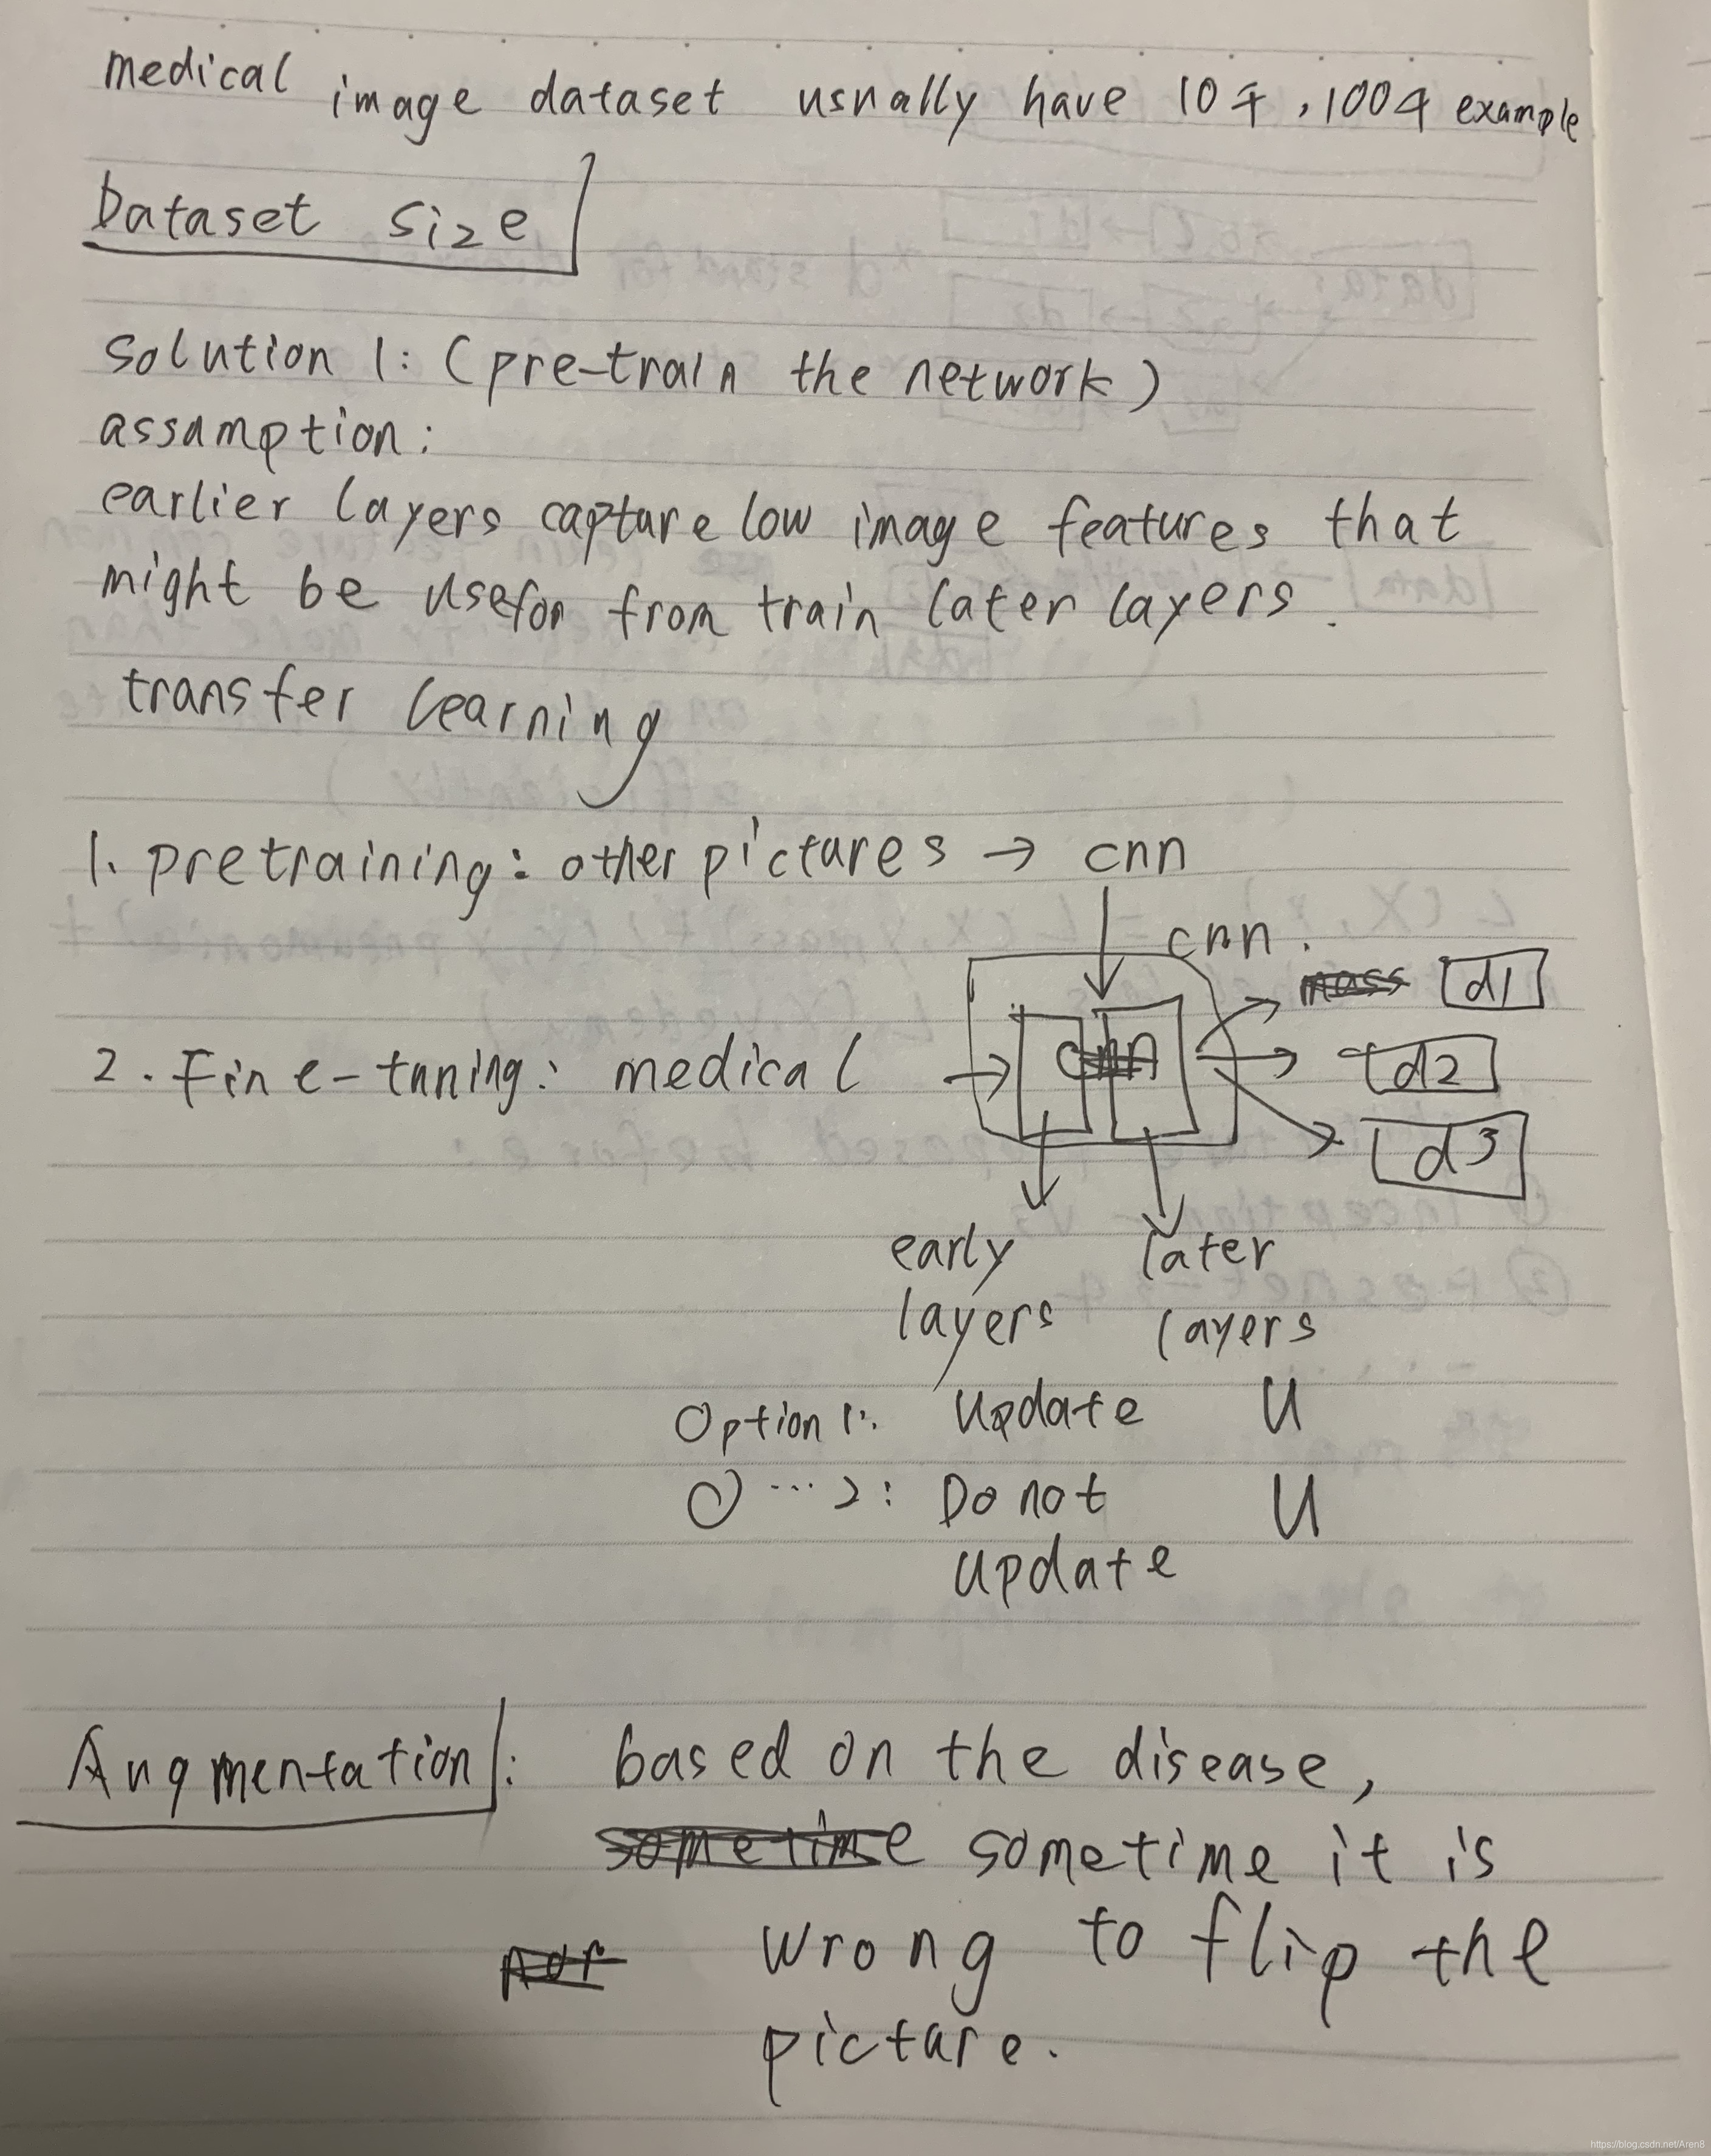 medical image dataset usually have 10千, 100千 example
Dataset size
solution 1: (pre-train the network)
assumption:
earlier layers capture low image features that
might be usefor from train later layers.
transfer learning
1. pretraining: other pictures → cnn
cnn.
mass d1
2. Fine-tuning: medical → cnn → d2
d3
early later
layers layers
Option 1: update U
O ... 2: Do not U
update
Augmentation: based on the disease,
sometime sometime it is
wrong to flip the
picture.
https://blog.csdn.net/Aren8